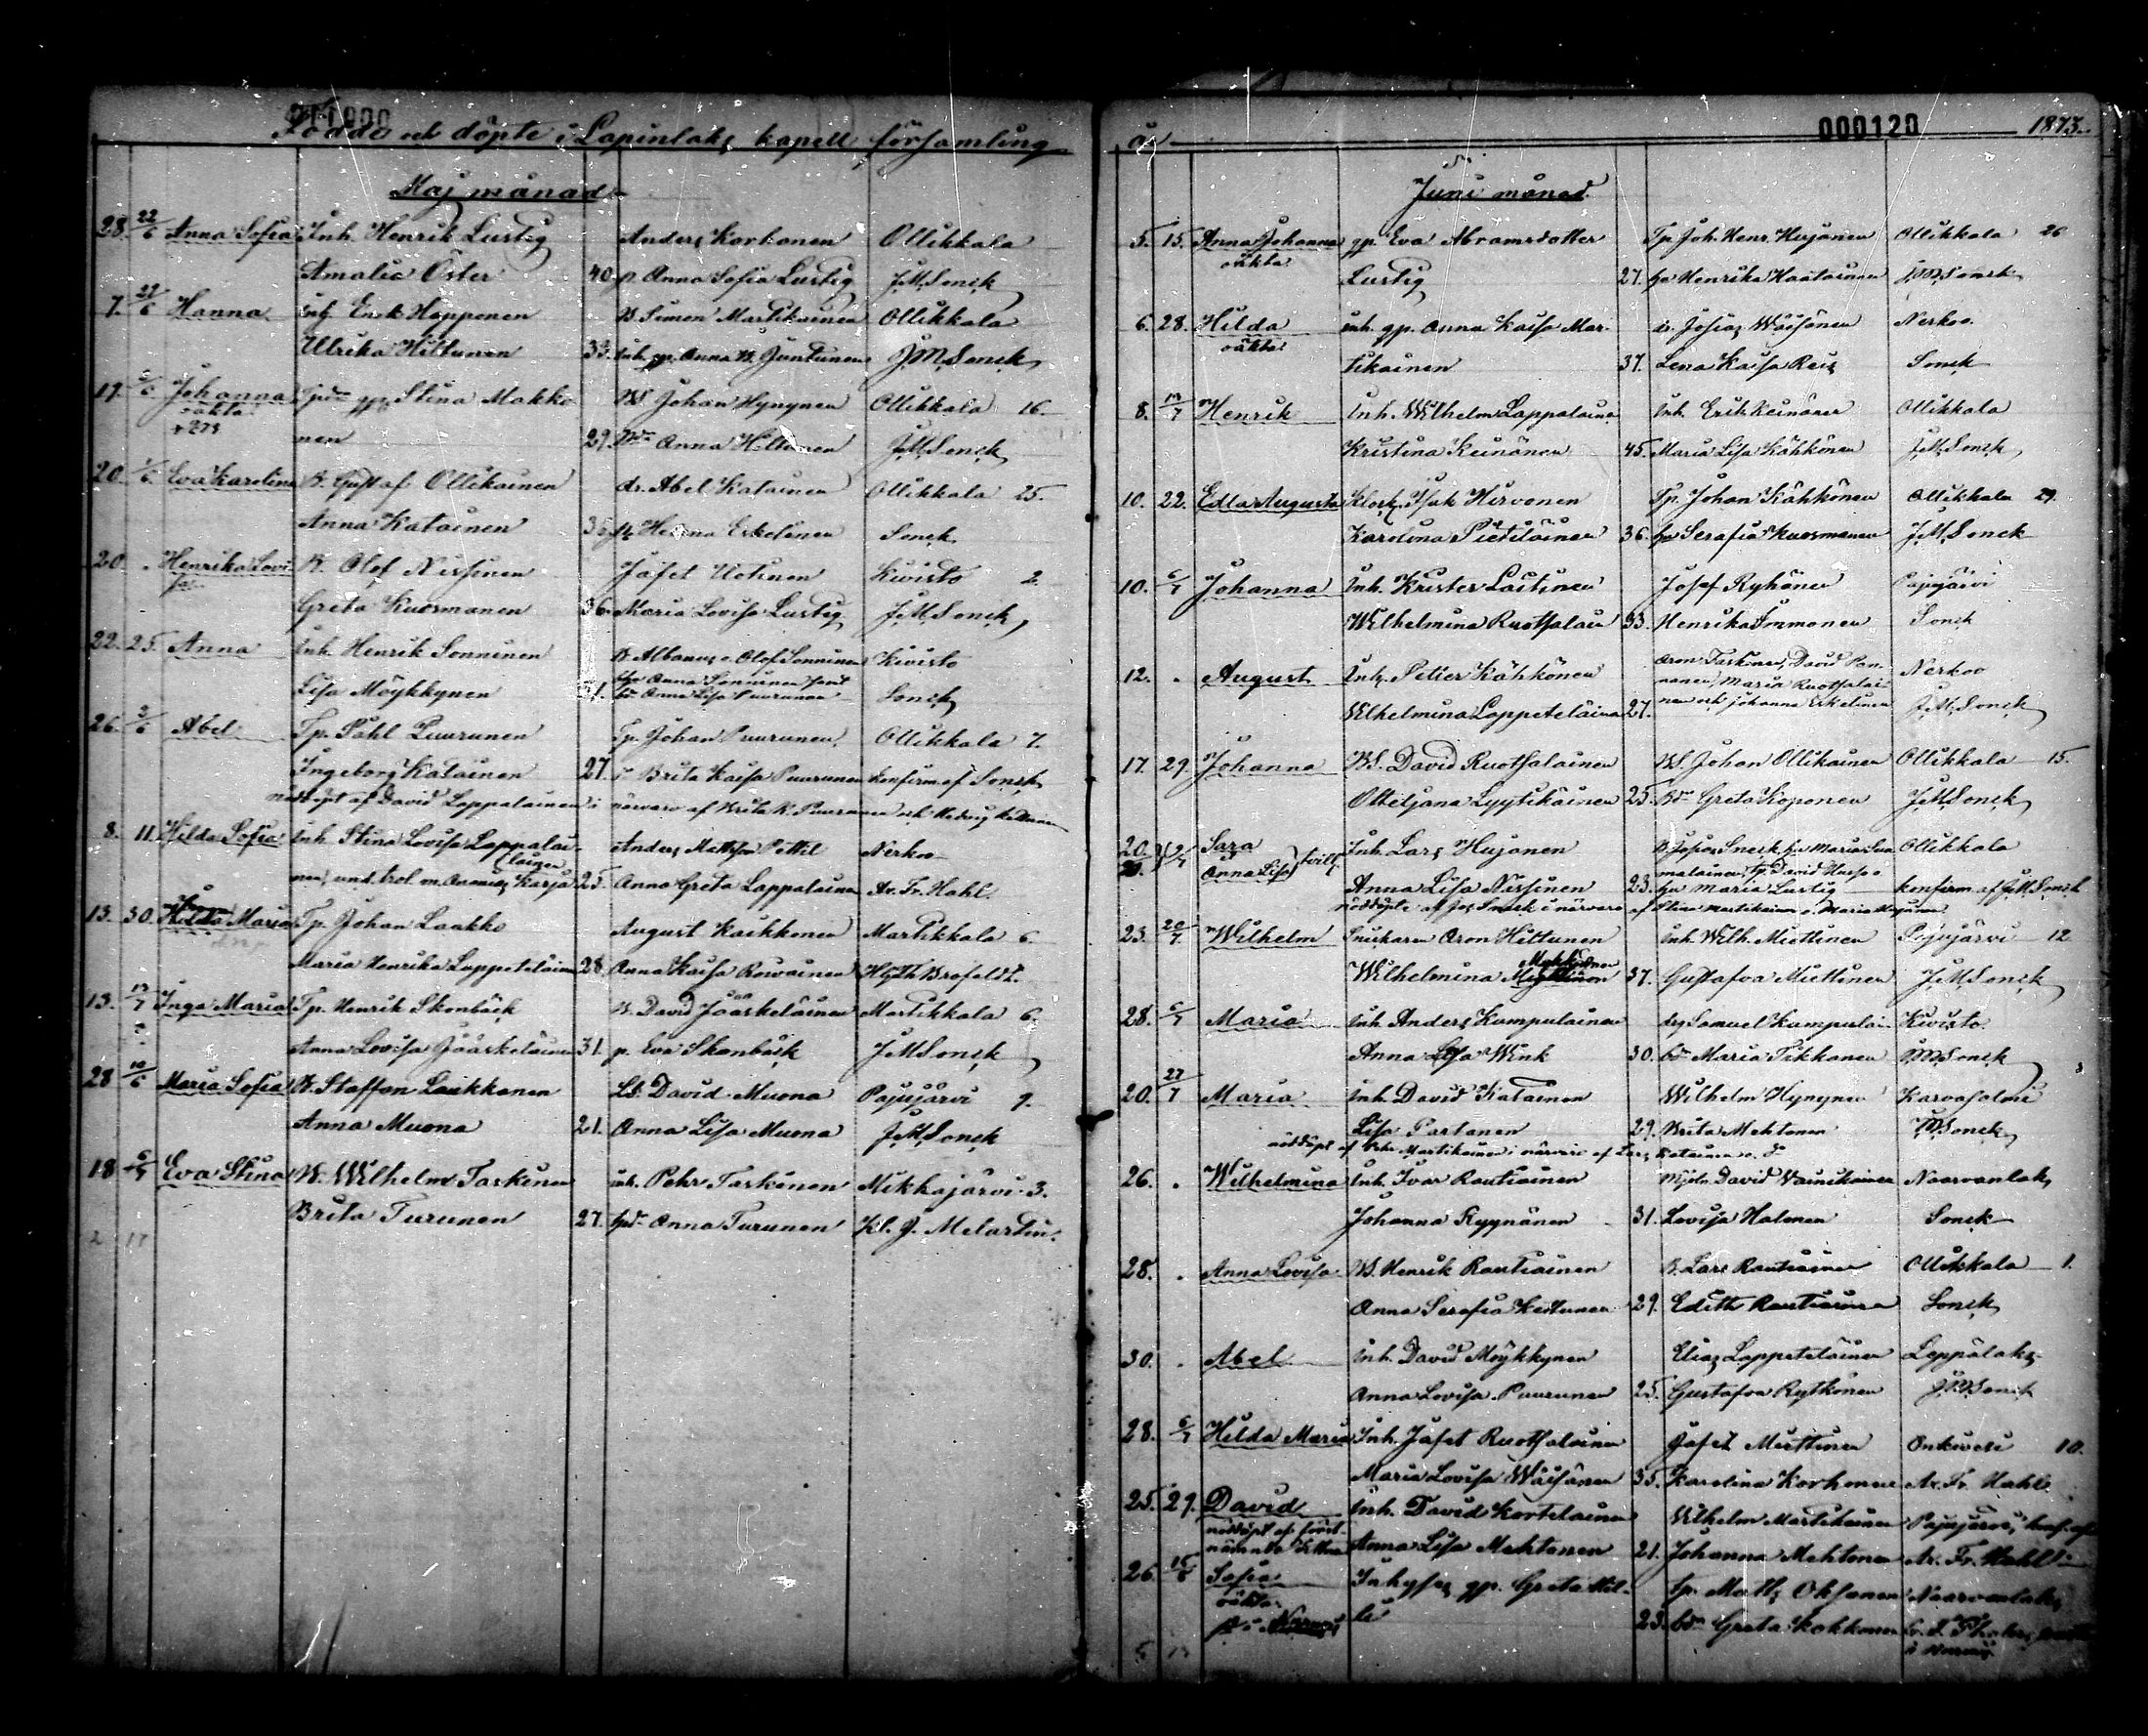 000119
Födde och döpte i Lapinlaks kapell församling
Maj månad
28. 22/6 Anna Sofia Inh. Henrik Lustig Anders Korhonen Ollikkala
Amalia Öster 40. p. Anna Sofia Lustig J.M.Sonck
7. 22/6 Hanna Inh. Erik Happonen B. Simon Martikainen Ollikkala
Ulrika Hiltunen 33. Inh. gp. Anna B. Juntunen J.M.Sonck
17. Johanna gp. Stina Makko- Bd. Johan Hynynen Ollikkala 16.
oäkta nen 29. Anna Hiltunen J.M.Sonck
20. 1/6 Eva Karolina B. Gustaf Ollikainen dr. Abel Katainen Ollikkala 25.
Anna Katainen 35. Helena Eskelinen Sonck
20. . Henrika Lovi- B. Olof Nissinen Jafet Uotinen Kivisto 2.
sa Greta Kuosmanen 36. Maria Lovisa Lustig J.M.Sonck
22. 25. Anna Inh. Henrik Sonninen B. Albanus o. Olof Sonninen Kivisto
Lisa Möykkynen 31. Anna Sonninen samt Anna Lisa Puurunen Sonck
26. 2/6 Abel Tp. Påhl Puurunen Tp. Johan Puurunen Ollikkala 7.
Ingeborg Katainen 27. Brita Kaisa Puurunen konfirm af Sonck
nöddöpt af David Lappalainen i närvaro af Brita K. Puurunen och Hedvig
8. 11. Hilda Sofia Inh. Stina Lovisa Lappalai- Anders Mattsson Pettil Nerkoo
nen, und. trol. m. Ananias Karja- lainen 25. Anna Greta Lappalainen Av. Fr. Hahl.
13. 30. Hilda Maria Tp. Johan Laakko August Kaikkonen Martikkala 6.
Maria Henrika Lappeteläinen 28. Anna Kaisa Rouvainen Hj. Th. Brofeldt.
13. 13/7 Inga Maria Tp. Henrik Skonbäck B. David Jääskeläinen Martikkala 6.
Anna Lovisa Jääskeläinen 31. p. Eva Skonbäck J.M.Sonck
28 10/6 Maria Sofia B. Staffan Laukkanen Ls. David Muona Pajujärvi 9.
Anna Muona 21. Anna Lisa Muona J.M.Sonck
18 6/7 Eva Stina B. Wilhelm Taskinen inh. Pehr Taskinen Mikkajärvi 3.
Brita Turunen 27. Anna Turunen Kl. J. Melartin.
2 17
år 000120 1873.
Juni månad
5. 15. Anna Johanna gp. Eva Abramsdotter Tp Joh. Henr. Hujanen Ollikkala 26
oäkta Lustig 27. hu Henrika Haatainen J.M.Sonck
6. 28. Hilda inh. gp. Anna Kaisa Mar- dr. Josias Wäisänen Nerkoo.
oäkta tikainen 37. Lena Kaisa Reis Sonck
8. 13/7 Henrik Inh. Wilhelm Lappalainen Inh. Erik Keinänen Ollikkala
Kristina Keinänen 45. Maria Lisa Kähkönen J.M.Sonck
10. 22. Edla Augusta Klock. Isak Hirvonen Tp. Johan Kähkönen Ollikkala 29.
Karolina Pietiläinen 36. hu Serafia Kuosmanen J.M.Sonck
10. 6/7 Johanna Inh. Krister Laitinen Josef Ryhänen Pajujärvi
Wilhelmina Ruotsalain 33. Henrika Immonen Sonck
12. . August Inh. Petter Kähkönen Aron Taskinen, David Pan- Nerkoo
Wilhelmina Lappeteläinen 27. nanen, Maria Ruotsalai- nen och Johanna Eskelinen J.M.Sonck
17. 29. Johanna Bd. David Ruotsalainen Bd. Johan Ollikainen Ollikkala 15.
Ottiljana Lyytikäinen 25. Greta Koponen J.M.Sonck
20. Sara Inh. Lars Hujanen Ollikkala
Anna Lisa tvill. Anna Lisa Nissinen 23. Maria Lustig konfirm. af J.M.Sonck
nöddöpte af Jos. Sneck i närvaro af Stina Martikainen o. Maria Hujanen
23. 20/7 Wilhelm Snickaren Aron Hiltunen Inh. Wilh. Miettinen Pajujärvi 12
Wilhelmina 37. Gustafva Miettinen J.M.Sonck
28. 6/7 Maria Inh. Anders Kumpulainen Samuel Kumpulai- Kivisto.
Anna Lisa Wink 30. Maria Tikkanen J.M.Sonck
20. 27/7 Maria Inh. David Katainen Wilhelm Hynynen Karvasalmi
Lisa Partanen 29. Brita Mehtonen J.M.Sonck
nöddöpt af Martikainen i närvaro af Lars Katainen
26. . Wilhelmina Inh. Ivar Rautiainen Mjöln. David Vainikainen Naarvanlaks
Johanna Ryynänen 31. Lovisa Halonen Sonck
28. . Anna Lovisa Bd. Henrik Rautiainen B. Lars Rautiainen Ollikkala 1.
Anna Serafia Kettunen 29. Edith Rautiainen Sonck
30. . Abel Inh. David Möykkynen Elias Lappeteläinen Leppälaks
Anna Lovisa Puurunen 25. Gustafva Rytkönen J.M.Sonck
28. 6/7 Hilda Maria Inh. Jafet Ruotsalainen Jafet Miettinen Onkivesi 10.
Maria Lovisa Wäisänen 35. Karolina Korhonen Av. Fr. Hahl
25. 29. David Inh. David Kortelainen Wilhelm Martikainen Pajujärvi, konf. af
nöddöpt af först- nämnde Anna Lisa Mehtonen 21. Johanna Mehtonen Av. Fr. Hahl
26. Sofia Inhyses gp. Greta Mil- Tp. Matts Oksanen Naarvanlaks
oäkta le 23. Greta Kokkonen
5 13